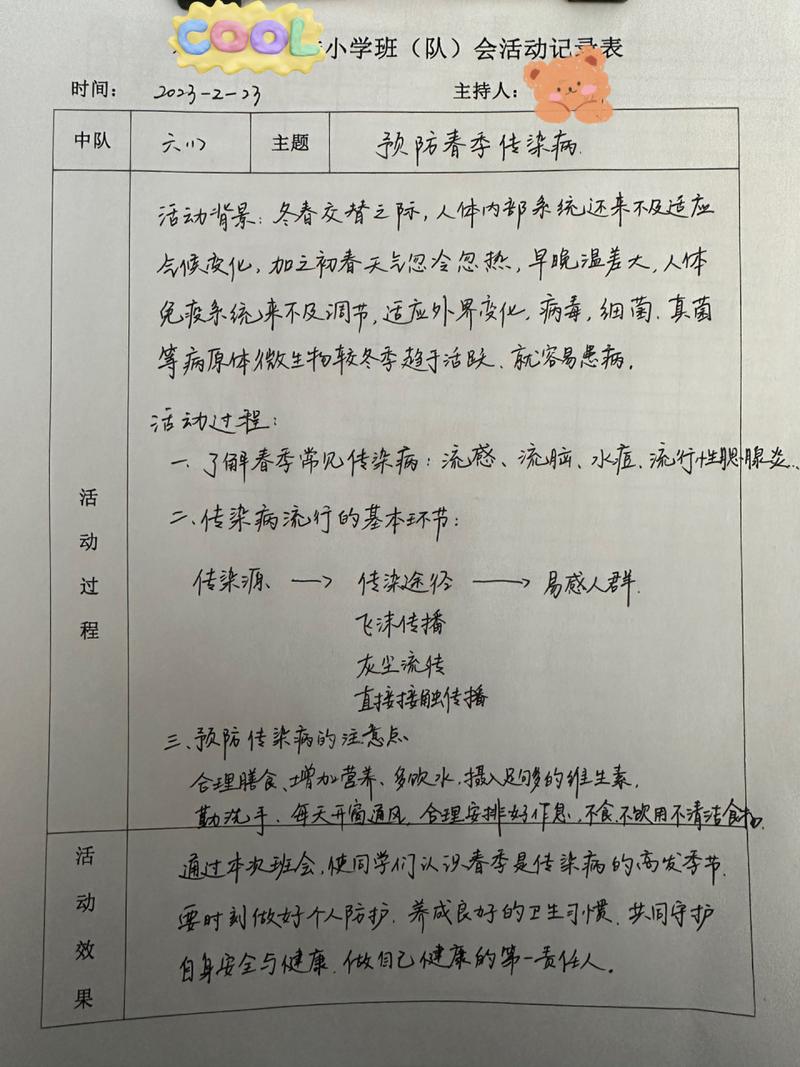 COOL
小学班（队）会活动记录表
时间： 2023-2-23 主持人：
中队 六(1) 主题 预防春季传染病.
活动过程
活动背景：冬春交替之际，人体内部系统还来不及适应
气候变化，加之初春天气忽冷忽热，早晚温差大，人体
免疫系统来不及调节，适应外界变化，病毒，细菌、真菌
等病原体微生物较冬季趋于活跃、就容易患病。
活动过程：
一、了解春季常见传染病：流感、流脑、水痘、流行性腮腺炎...
二、传染病流行的基本环节：
传染源 → 传染途径 → 易感人群.
飞沫传播
灰尘流传
直接接触传播
三、预防传染病的注意点
合理膳食、增加营养、多饮水，摄入足够多的维生素，
勤洗手、每天开窗通风，合理安排好作息，不食、不饮用不清洁食物.
活动效果
通过本次班会，使同学们认识春季是传染病的高发季节，
要时刻做好个人防护，养成良好的卫生习惯，共同守护
自身安全与健康，做自己健康的第一责任人。